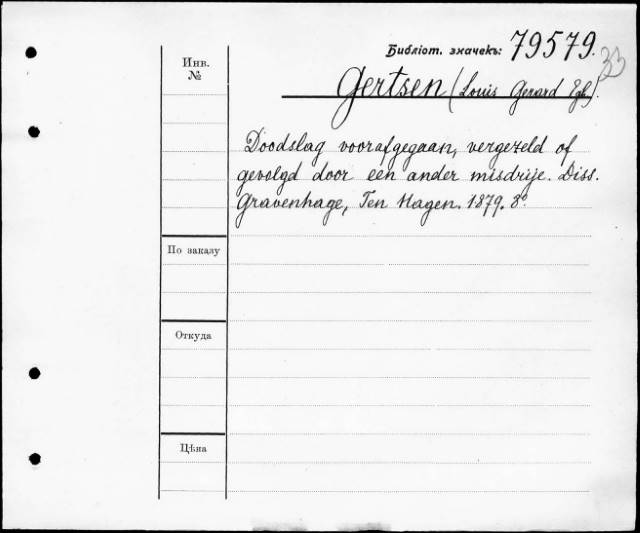 Библіот. значекъ: 79579.
33
Инв.
№
Gertsen (Louis Gerard Egb.).
Doodslag voorafgegaan, vergezeld of
gevolgd door een ander misdrije. Diss.
Gravenhage, Ten Hagen. 1879. 8°
По заказу
Откуда
Цѣна